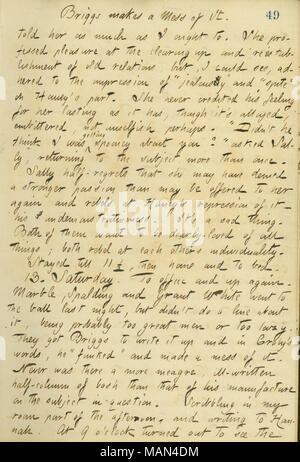 Briggs makes a Mess of It.
49
told her as much as I ought to. She pro-
fessed pleasure at the clearing up and re-estab-
lishment of old relations but, I could see, ad-
hered to the impression of "jealousy" and "spite"
on Haney's part. She never credited his feeling
for her lasting as it has, though it's alloyed,
embittered, not unselfish perhaps. "Didn't he
think I was getting spooney about you?" asked Sal-
ly, returning to the subject more than once.
Sally half-regrets that she may have denied
a stronger passion than may be offered to her
again and rebels at Haney's repression of it
his It's a sad thing.
Both of them want to be dearly-loved of all
things; both rebel at each others individuality.
Stayed till 11 1/2, then home and to bed.
13. Saturday. To office and up again.
Marble, Spalding and Grant White went to
the ball last night, but didn't do a line about
it, being probably too great men or too lazy.
They got Briggs to write it up and in Croly's
words, he "funked" and made a mess of it.
Never was there a more meagre, ill-written
half-column of bosh than that of his manufacture
on the subject in question. Scribbling in my
room part of the afternoon, and writing to Han-
nah. At 9 o'clock turned out to see the
alamy
Image ID: MAN4DM
www.alamy.com